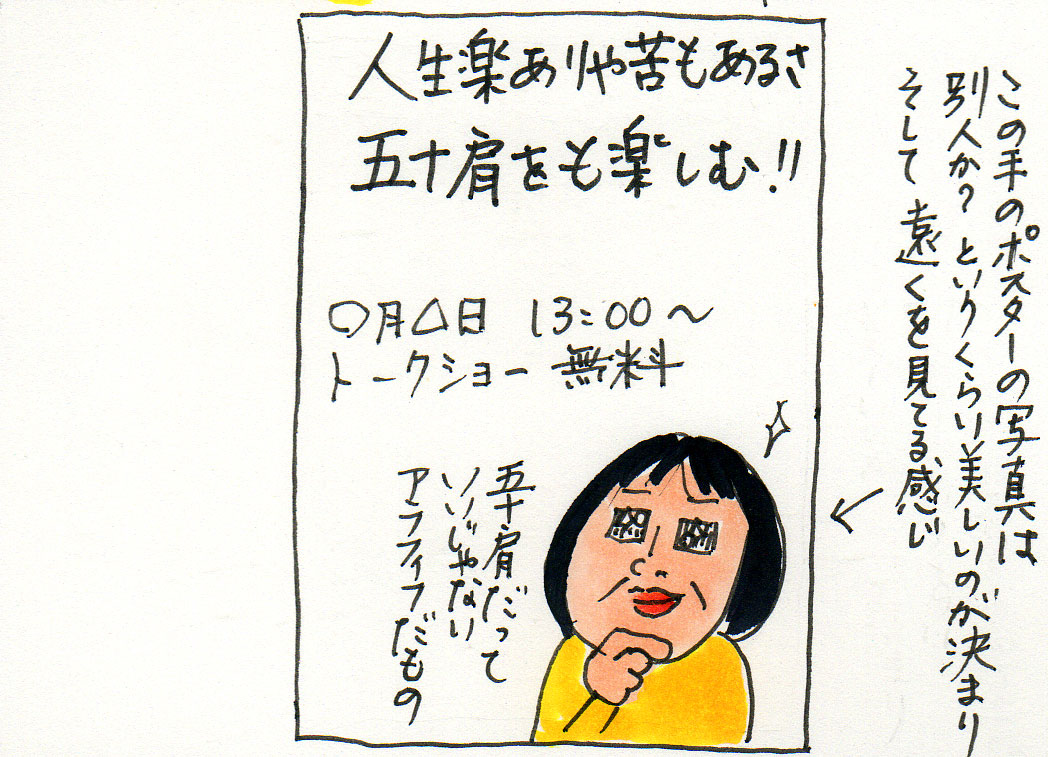 人生楽ありゃ苦もあるさ
五十肩をも楽しむ!!
〇月△日 13:00〜
トークショー 無料
五十肩だって
いいじゃない
アラフィフだもの
この手のポスターの写真は
別人か?というくらい美しいのが決まり
そして遠くを見てる感じ